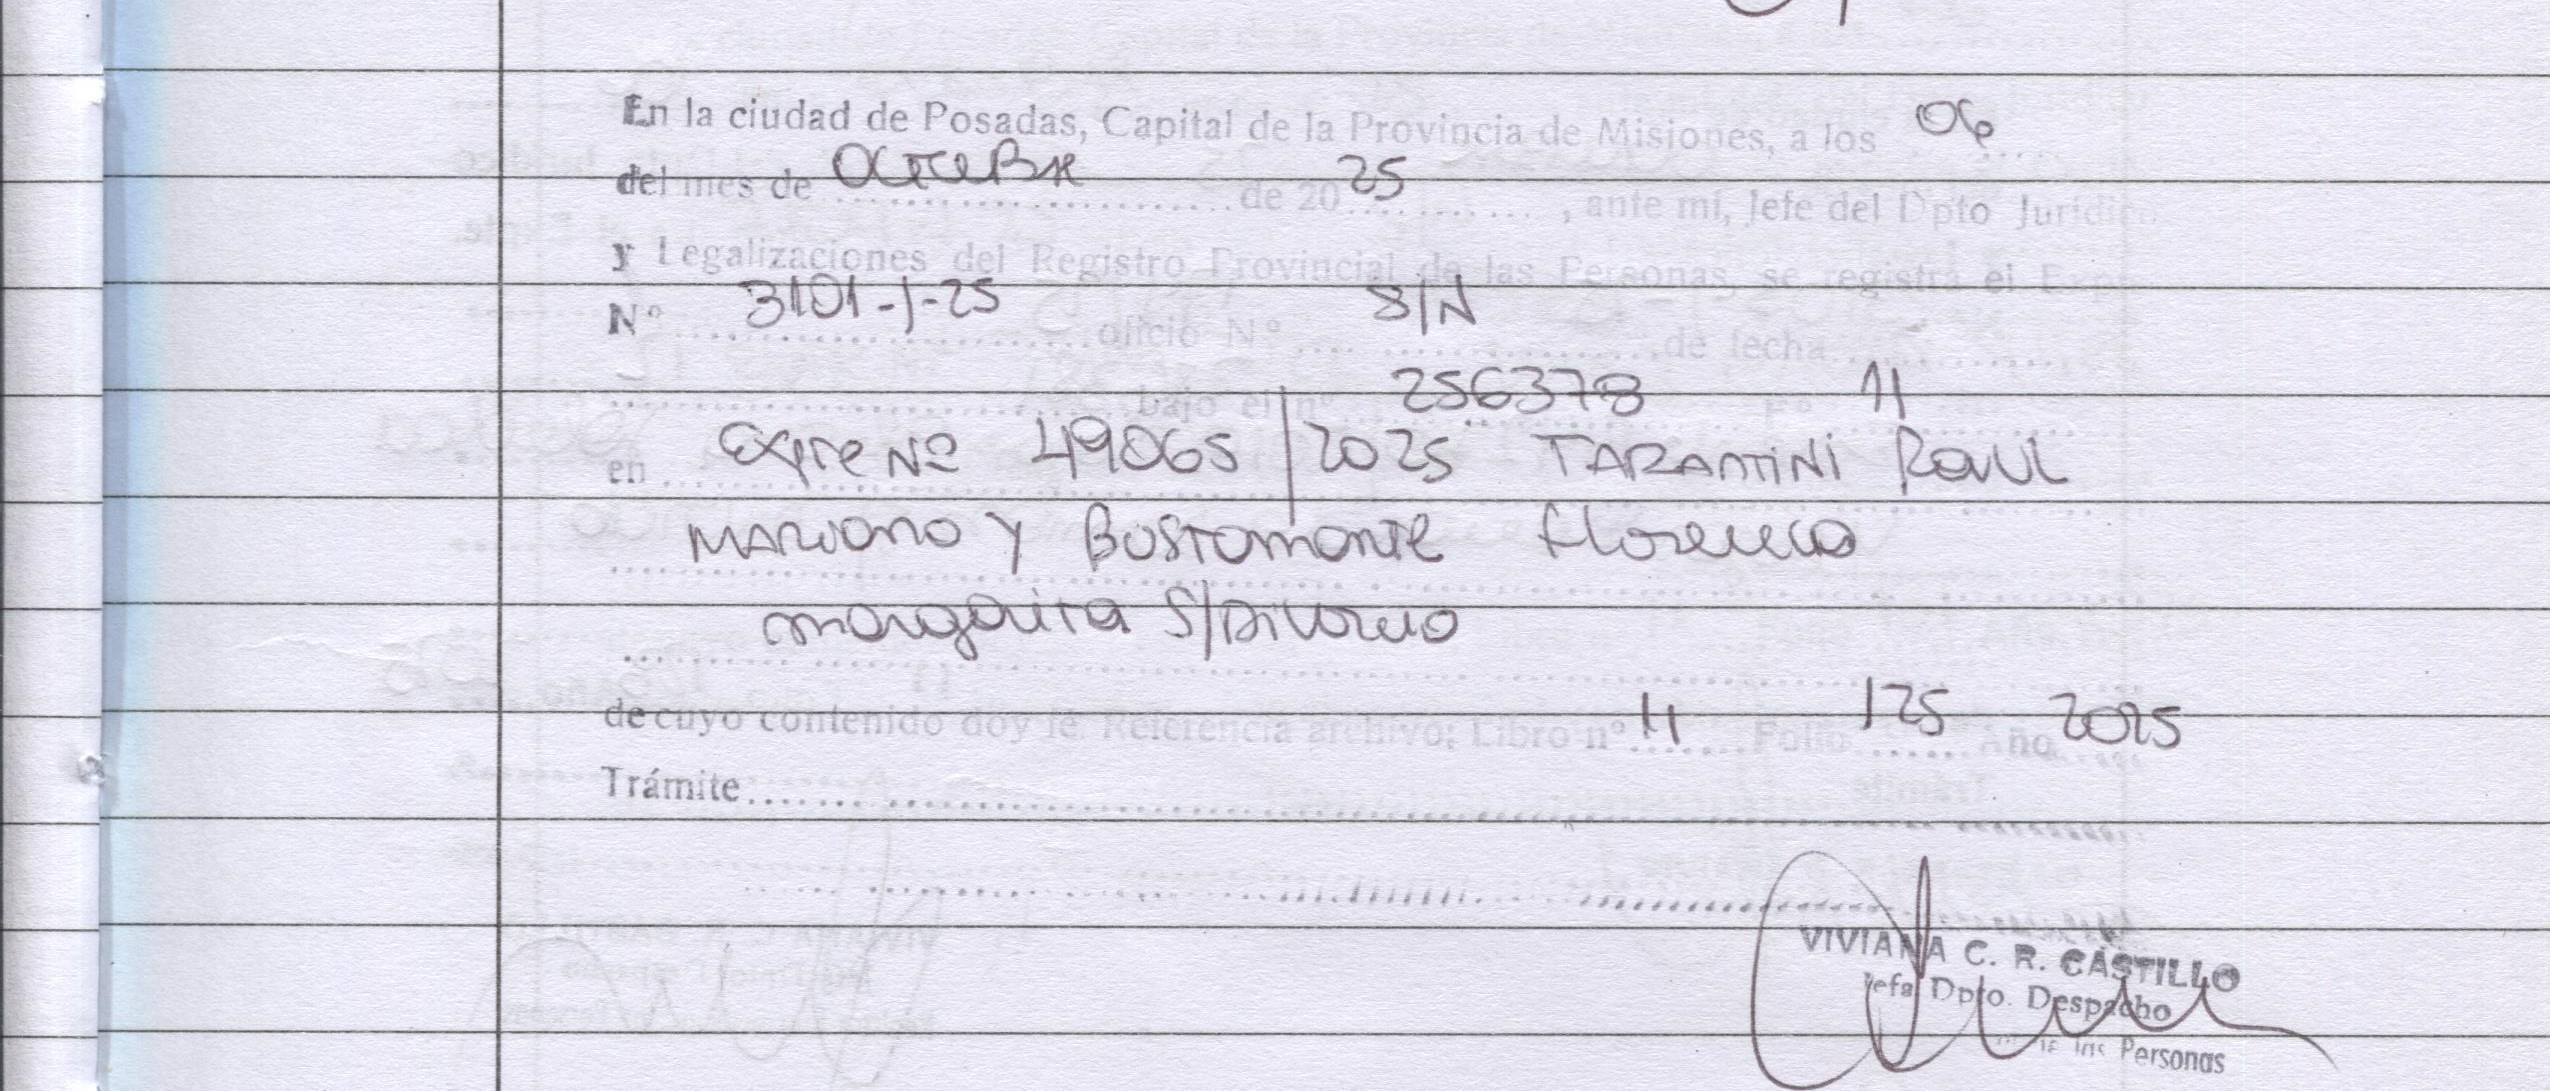 En la ciudad de Posadas, Capital de la Provincia de Misiones, a los 06
del mes de Octubre de 2025, ante mí, Jefe del Dpto Jurídico
y Legalizaciones del Registro Provincial de las Personas, se registra el Expte.
Nº 3101-J-25 oficio Nº S/N de fecha
bajo el nº 256378 Fº 11
en Expte Nº 49065/2025 TARANTINI RAUL
MARIANO Y BUSTAMANTE Florencia
margarita S/DiVorcio
de cuyo contenido doy fe. Referencia archivo: Libro nº 11 Folio 125 Año 2025
Trámite
VIVIANA C. R. CASTILLO
Jefa Dpto. Despacho
de las Personas